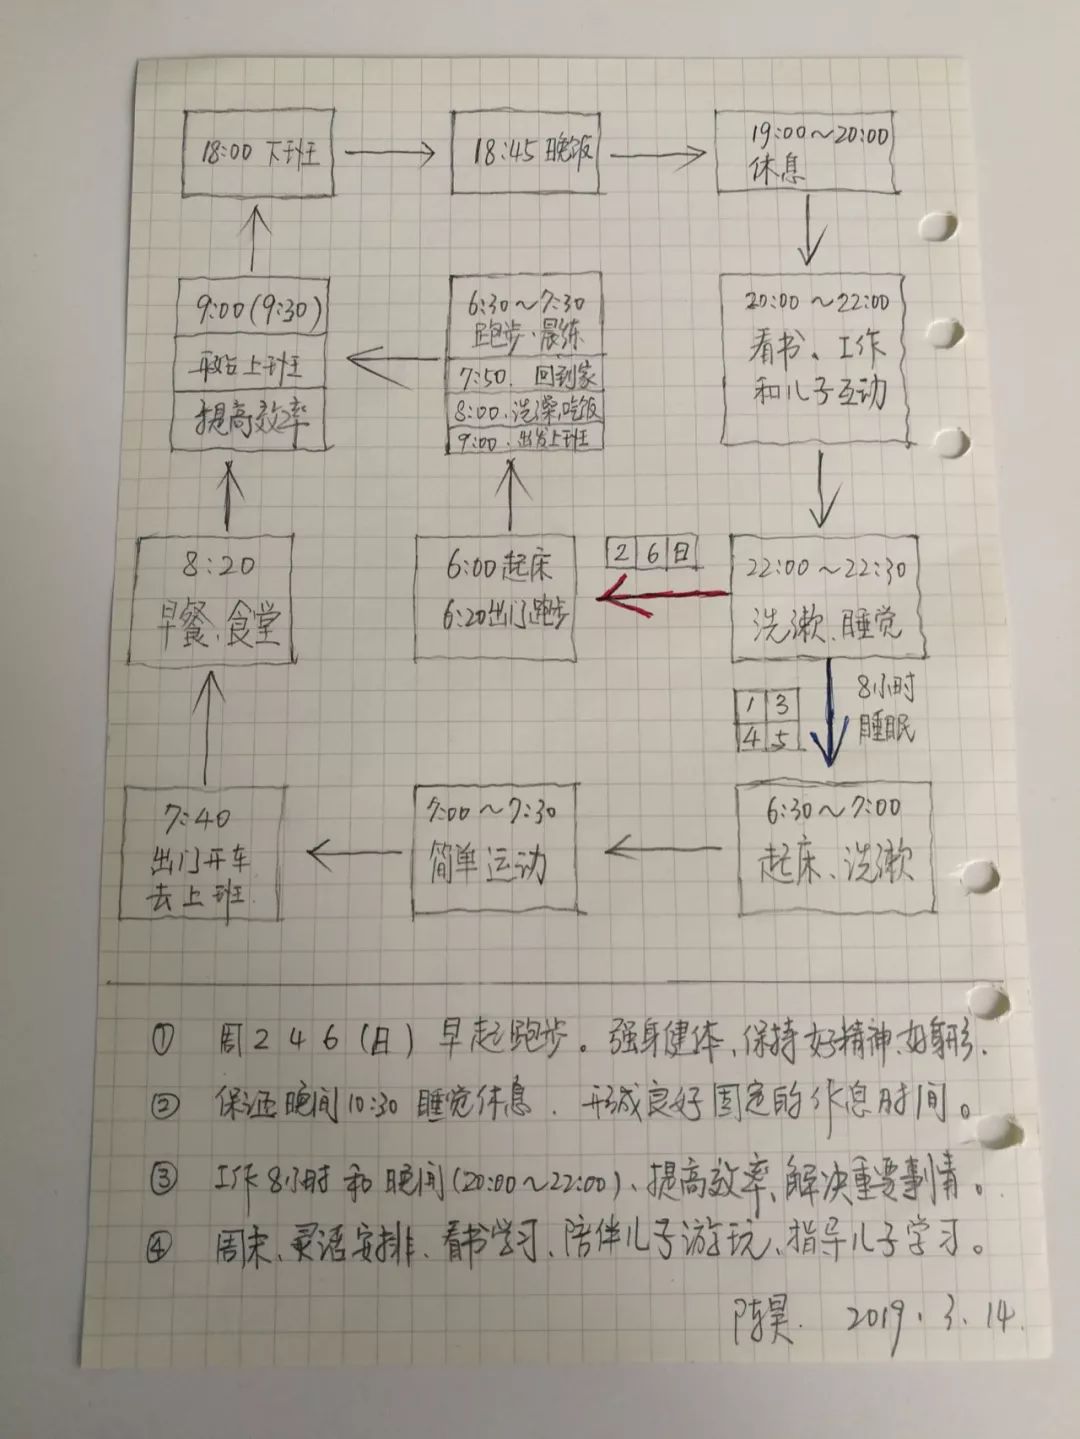 18:00 下班
18:45 晚饭
19:00～20:00
休息
9:00(9:30)
上班
提高效率
6:30～7:30
跑步、晨练
7:50. 回到家
8:00.洗澡,吃饭
9:00.出发上班
20:00～22:00
看书、工作
和儿子互动
8:20
早餐、食堂
6:00起床
6:20出门跑步
2 6 日
22:00～22:30
洗漱、睡觉
1 3
4 5
8小时
睡眠
7:40
出门开车
去上班.
7:00～7:30
简单运动
6:30～7:00
起床、洗漱
① 周2 4 6(日)早起跑步。强身健体、保持好精神、好身形.
② 保证晚间10:30睡觉休息. 形成良好固定的作息时间。
③ 工作8小时和晚间(20:00～22:00)、提高效率、解决重要事情。
④ 周末、灵活安排、看书学习、陪伴儿子游玩、指导儿子学习。
陈昊. 2019.3.14.